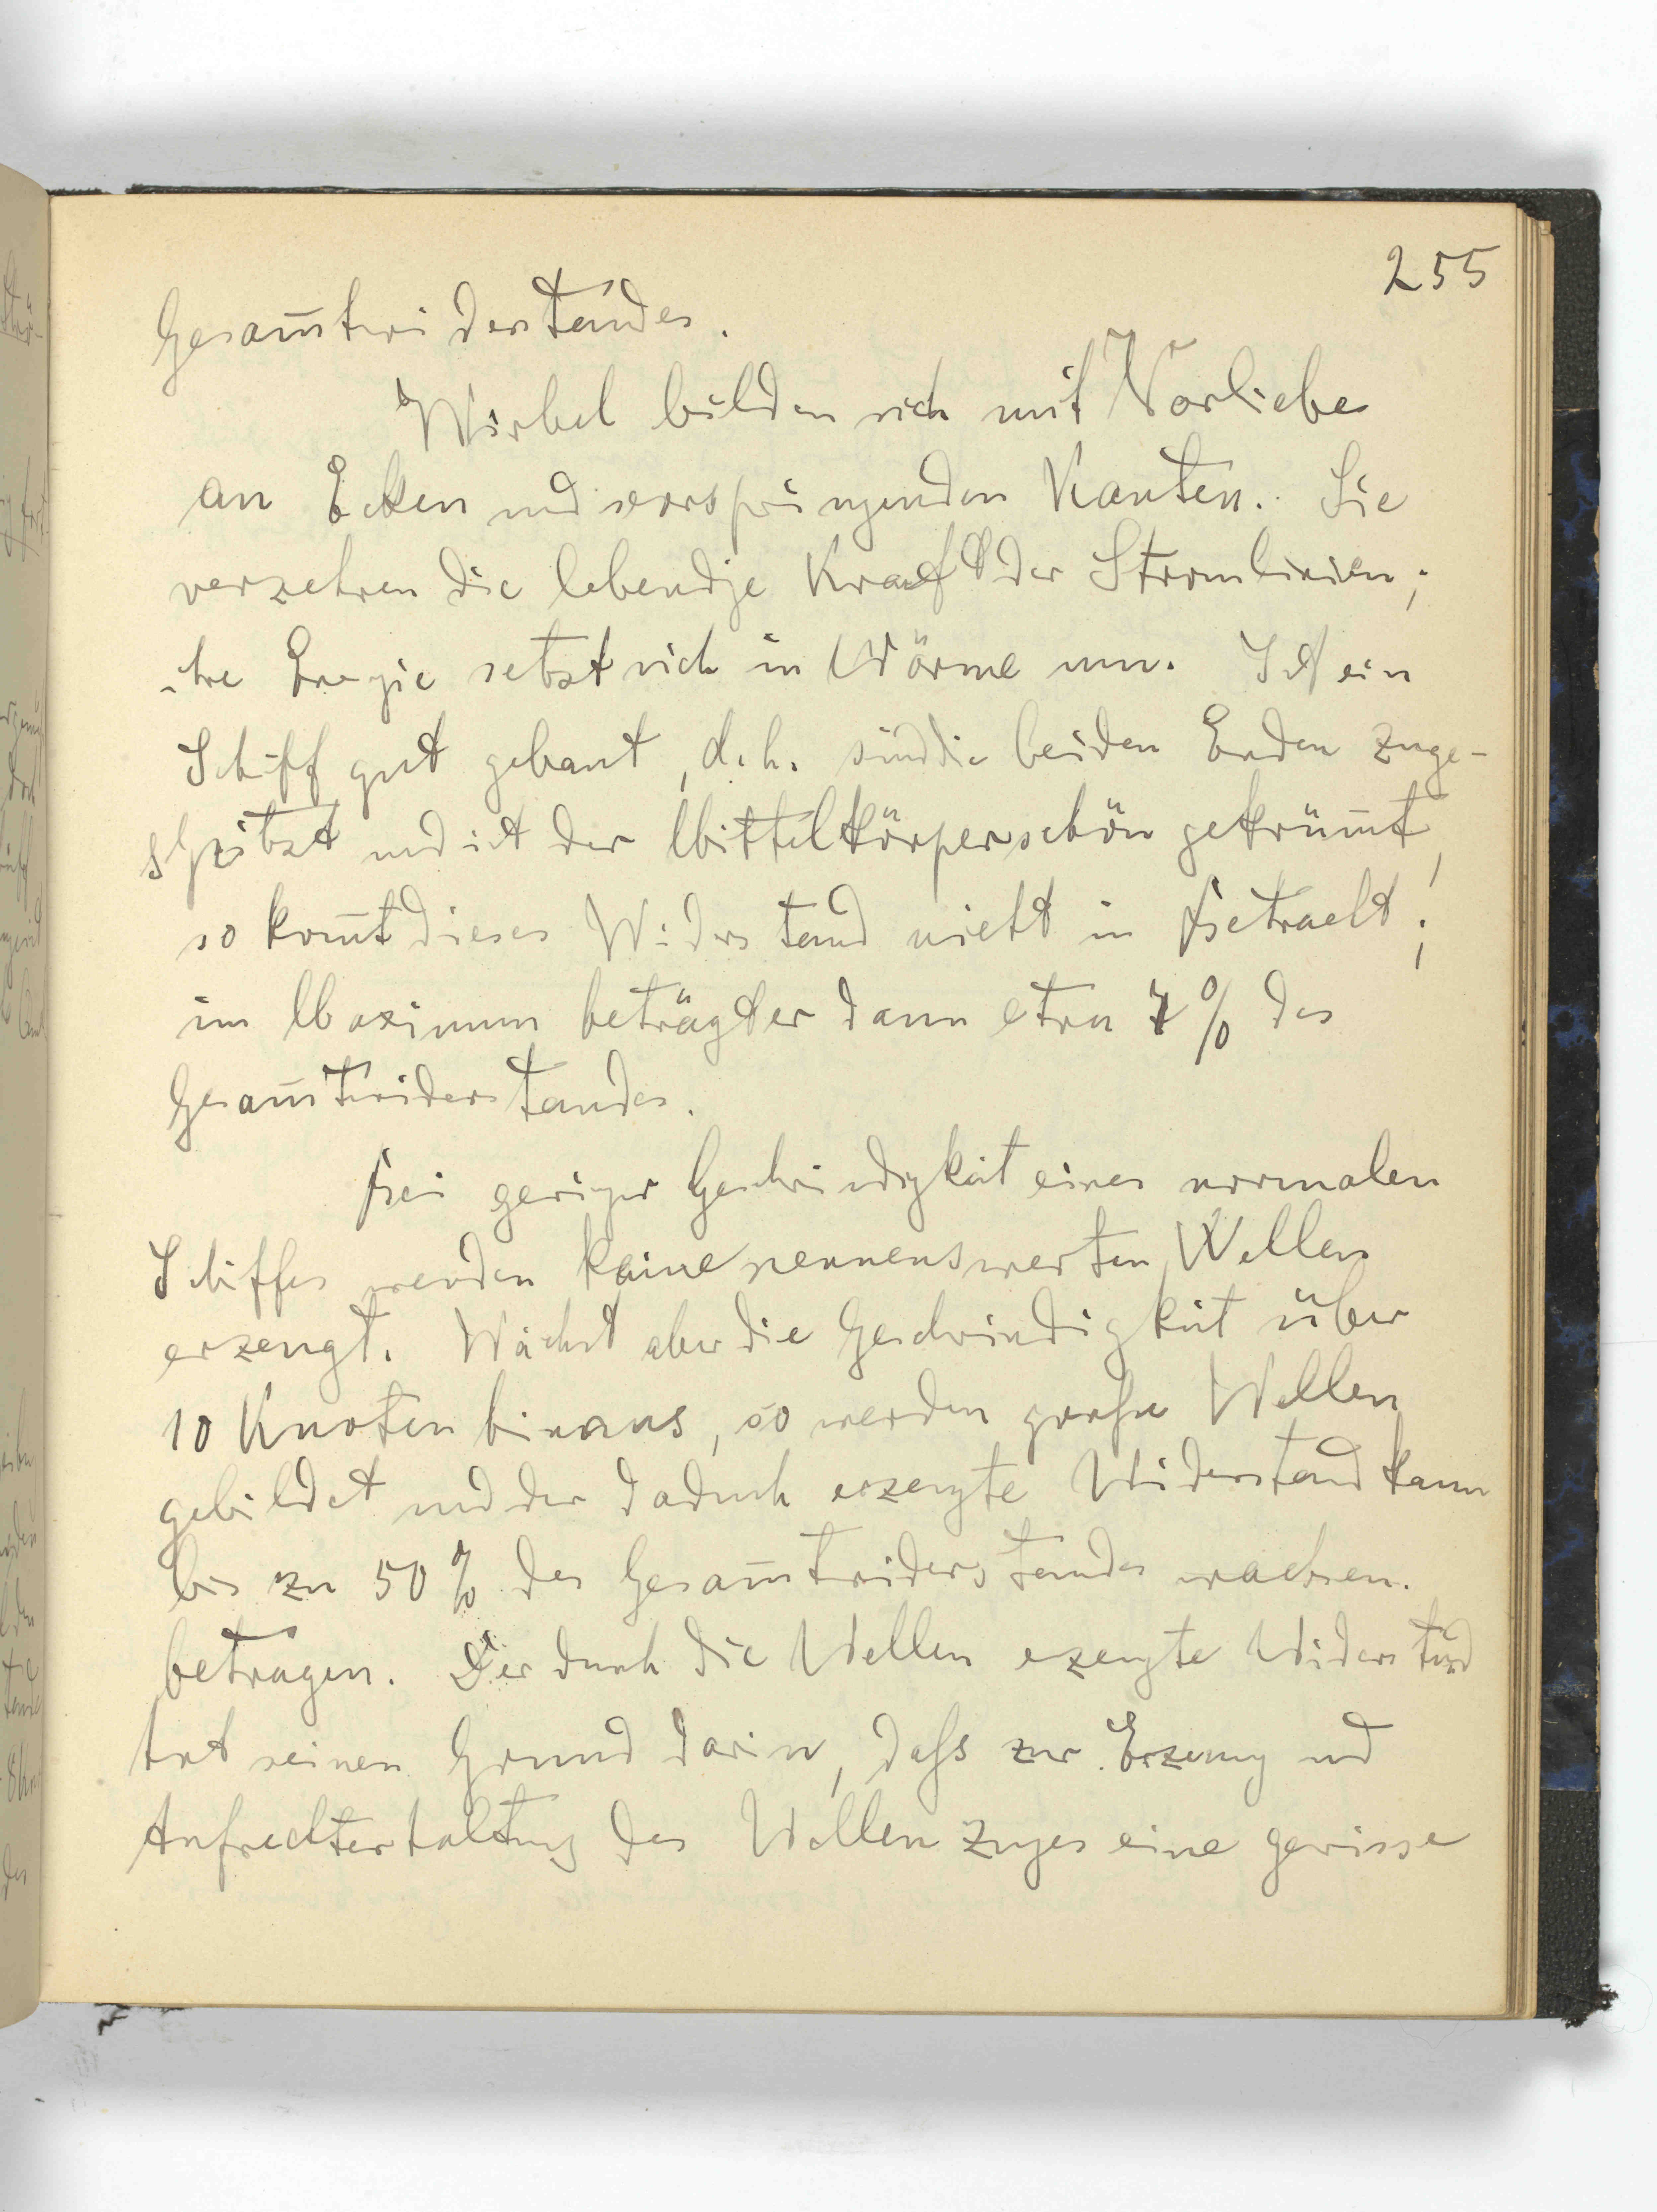 255
Gesam̅twiderstandes.
Wirbel bilden sich mit Vorliebe
an Ecken und vorspringenden Kanten. Sie
verzehren die lebendge Kraft der Stromlinien;
ihre Energie setzt sich in Wärme um. Ist ein
Schiff gut gebaut, d. h. sind die beiden Enden zuge-
spitzt und ist der Mittelkörper schön gekrüm̅t,
so kom̅t dieser Widerstand nicht in Betracht;
im Maximum beträgt er dann etwa 7% des
Gesam̅twiderstandes.
Bei geringer Geschwindigkeit eines normalen
Schiffes werden keine nennenswerten Wellen
erzeugt. Wächst aber die Geschwindigkeit über
10 Knoten hinaus, so werden große Wellen
gebildet und der dadurch erzeugte Widerstand kann
bis zu 50% des Gesam̅twiderstandes wachsen.
betragen. Der durch die Wellen erzeugte Widerstand
hat seinen Grund darin, daß zur Erzeugung und
Aufrechterhaltung des Wellenzuges eine gewisse